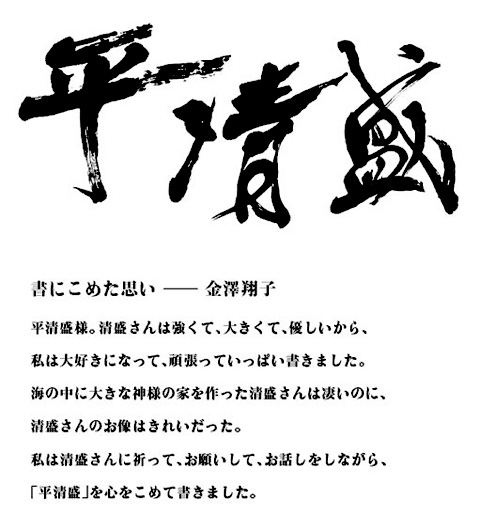 平清盛
書にこめた思い —— 金澤翔子
平清盛様。清盛さんは強くて、大きくて、優しいから、
私は大好きになって、頑張っていっぱい書きました。
海の中に大きな神様の家を作った清盛さんは凄いのに、
清盛さんのお像はきれいだった。
私は清盛さんに祈って、お願いして、お話しをしながら、
「平清盛」を心をこめて書きました。